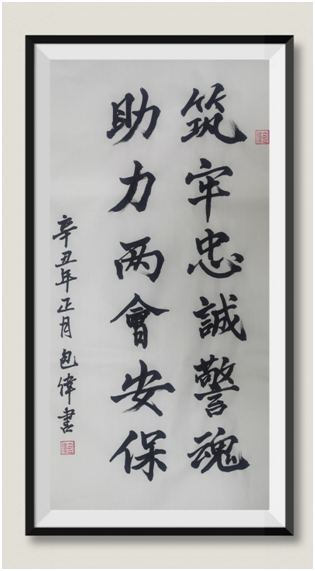 筑牢忠誠警魂
助力两會安保
辛丑年正月包偉書